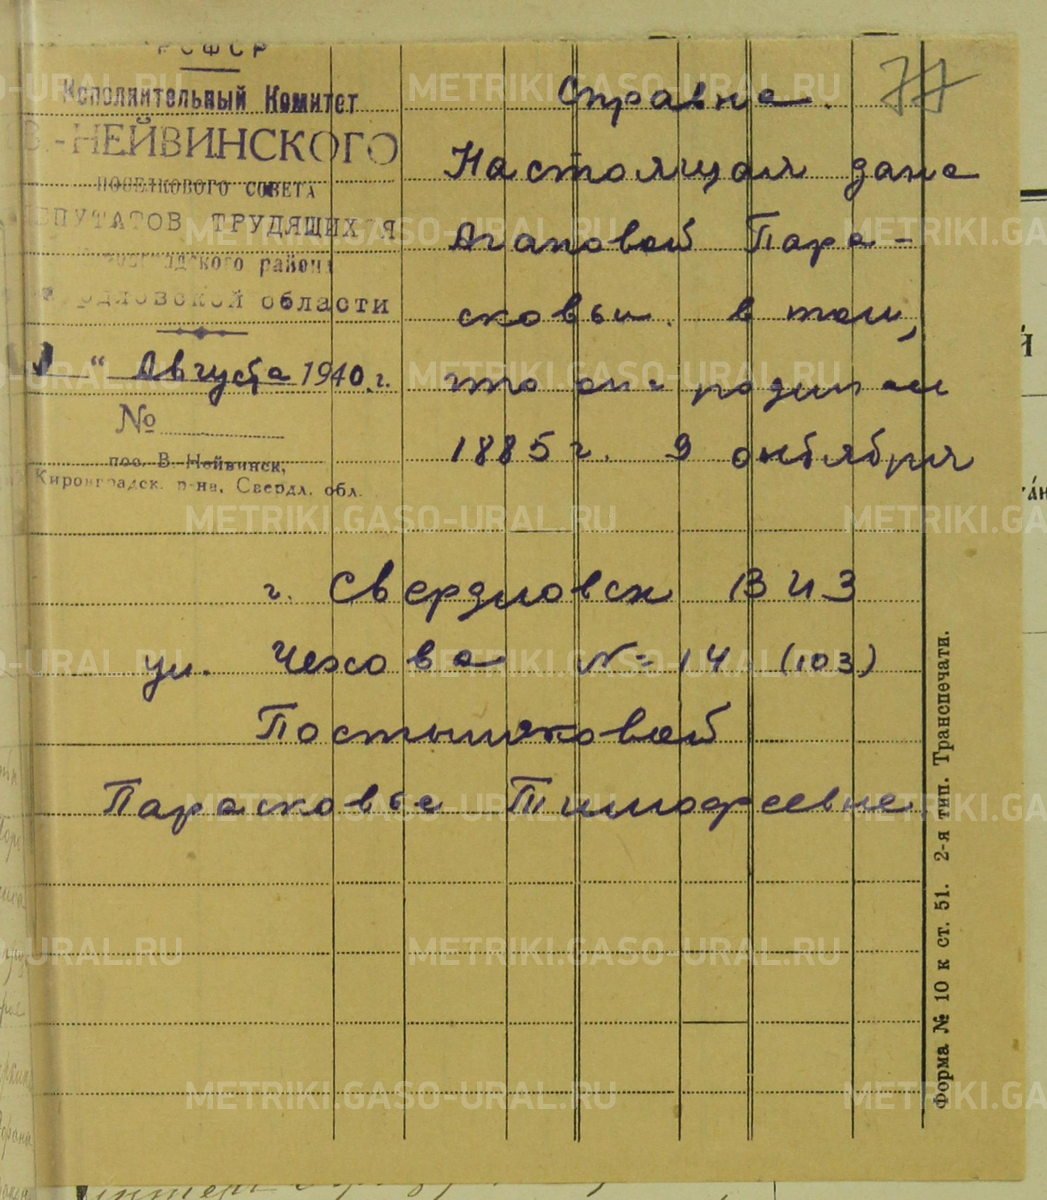 РСФСР
Исполнительный Комитет
В.-НЕЙВИНСКОГО
ПОСЕЛКОВОГО СОВЕТА
ДЕПУТАТОВ ТРУДЯЩИХСЯ
района
Свердловской области
" Августа 1940 г.
№
пос. В-Нейвинск,
Кировградск. р-на, Свердл. обл.
77
Справка.
Настоящая дана
Агаповой Пара-
сковьи в том,
что она родилась
1885 г. 9 октября
г. Свердловск ВИЗ
ул. Чехова № 14 (103)
Постыляковой
Парасковье Тимофеевне
Форма № 10 к ст. 51. 2-я тип. Транспечати.
METRIKI.GASO-URAL.RU